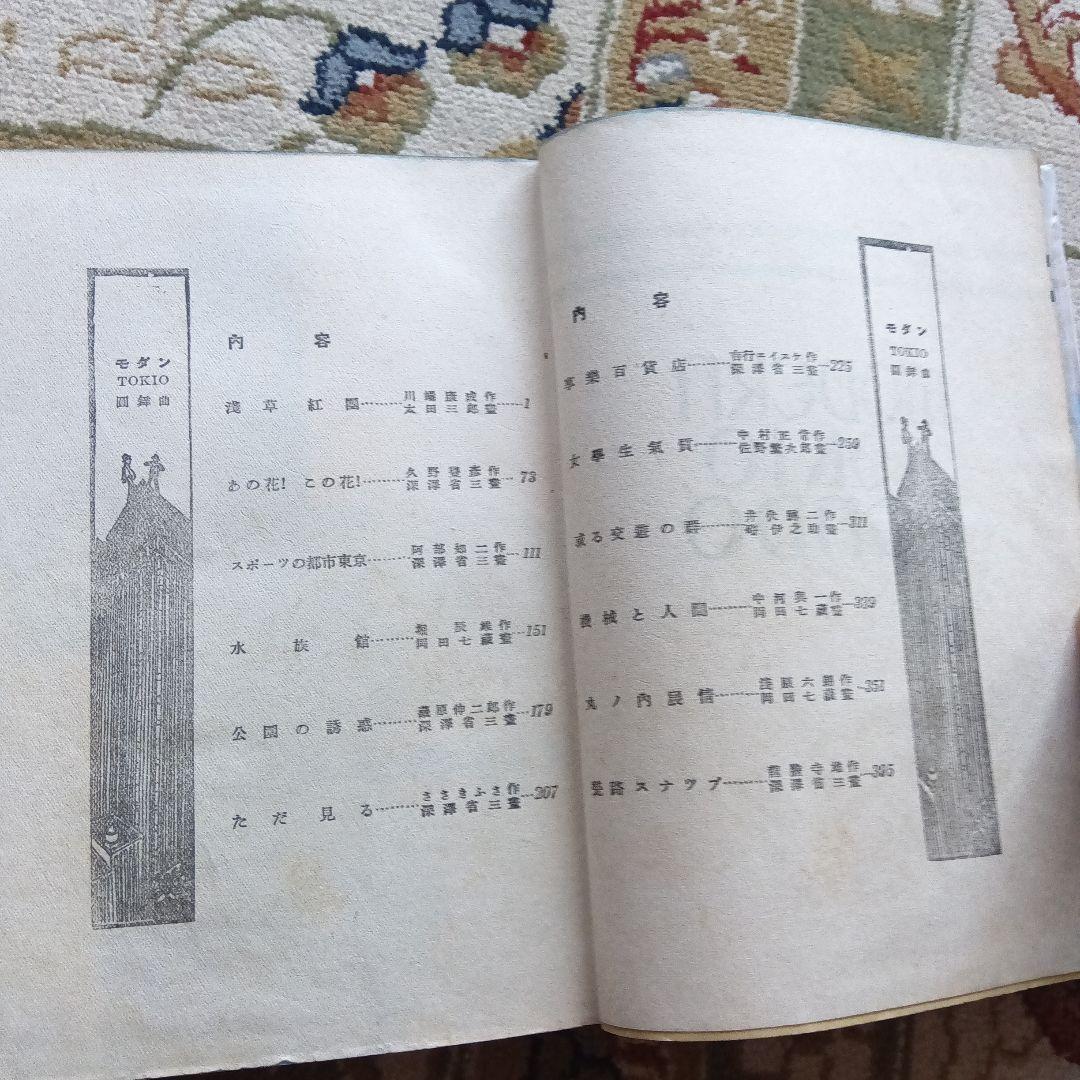 モダン
TOKIO
圓舞曲
內容
淺草紅團………川端康成作
太田三郎畫……1
あの花！この花！………久野豐彥作
深澤省三畫…73
スポーツの都市東京………阿部知二作
深澤省三畫…111
水族館………堀辰雄作
岡田七藏畫…151
公園の誘惑………藤原伸二郎作
深澤省三畫…179
ただ見る………ささきふさ作
深澤省三畫…207
內容
享樂百貨店………吉行エイスケ作
深澤省三畫…225
女學生氣質………中村正常作
佐野繁次郎畫…259
或る交遊の群………井伏鱒二作
伊之助畫…311
機械と人間………中河與一作
岡田七藏畫…339
丸ノ內展信………淺原六朗作
岡田七藏畫…351
路スナツプ………龍膽寺雄作
深澤省三畫…395
モダン
TOKIO
圓舞曲